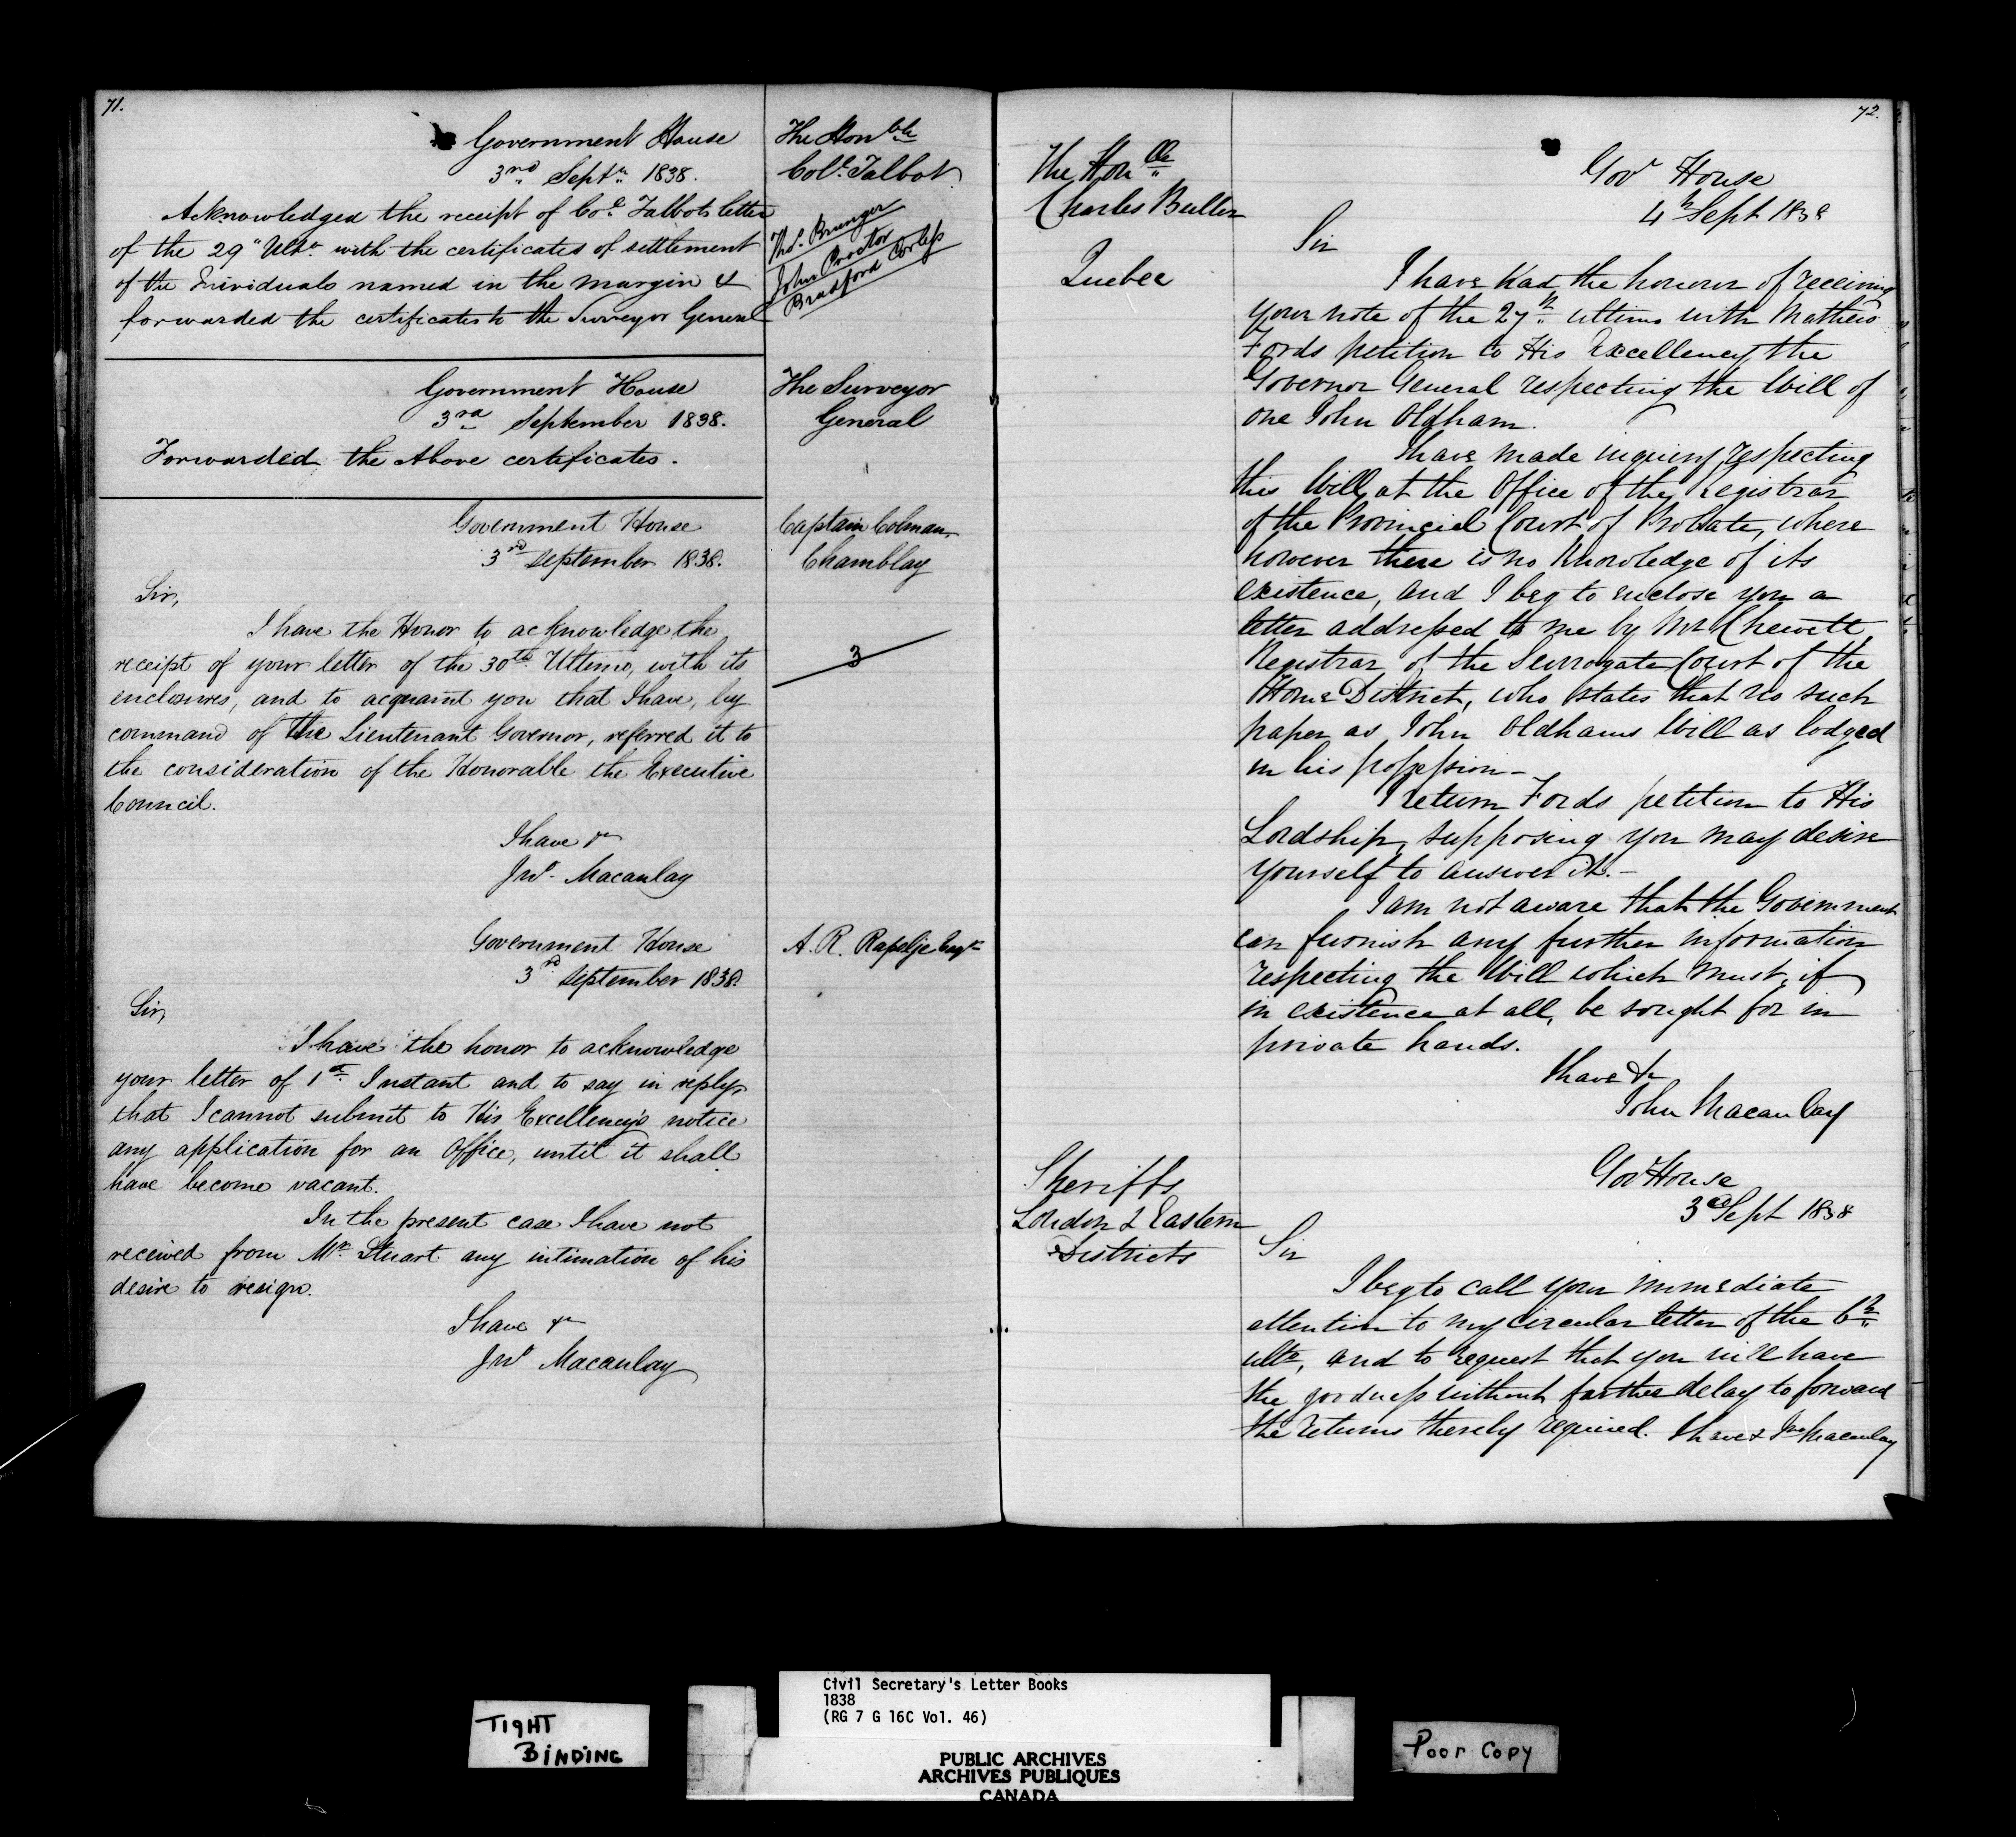 71.
Government House
3rd Septr. 1838.
The Honble
Col. Talbot
Acknowledged the receipt of Col. Talbots letter
of the 29" Ulto. with the certificates of settlement
of the Individuals named in the margin &
forwarded the certificates to the Surveyor General
Thos. Brunger
John Proctor
Bradford Corless
Government House
3rd September 1838.
The Surveyor
General
Forwarded the Above certificates.
Government House
3rd September 1838.
Captain Colman,
Chamblay
Sir,
I have the Honor to acknowledge the
receipt of your letter of the 30th Ultimo, with its
enclosures, and to acquaint you that I have, by
command of the Lieutenant Governor, referred it to
the consideration of the Honorable the Executive
Council.
3
I have &c
Jno. Macaulay
Government House
3rd September 1838.
A. R. Rapelje Esqr
Sir,
I have the honor to acknowledge
your letter of 1st Instant and to say in reply,
that I cannot submit to His Excellency's notice
any application for an Office, until it shall
have become vacant.
In the present case I have not
received from Mr. Stuart any intimation of his
desire to resign.
I have &c
Jno Macaulay
72.
The Honble
Charles Buller
Quebec
Govt House
4th Sept 1838
Sir
I have had the honour of receiving
your note of the 27th ultimo with Mathew
Fords petition to His Excellency the
Governor General respecting the Will of
one John Oldham.
I have made inquiry respecting
this Will, at the Office of the Registrar
of the Provincial Court of Probate, where
however there is no knowledge of its
existence, and I beg to enclose you a
letter addressed to me by Mr Chewett,
Registrar of the Surrogate Court of the
Home District, who states that no such
paper as John Oldhams Will as lodged
in his possession–
I return Fords petition to His
Lordship, supposing you may desire
yourself to answer it.–
I am not aware that the Government
can furnish any further information
respecting the Will which must, if
in existence at all, be sought for in
private hands.
I have &c
John Macaulay
Sheriffs
London & Eastern
Districts
Govt House
3d Sept 1838
Sir
I beg to call your immediate
attention to my circular letter of the 6th
ulto, and to request that you will have
the goodness without farther delay to forward
the returns thereby required. I have & Jno Macaulay
TIGHT
BINDING
Civil Secretary's Letter Books
1838
(RG 7 G 16C Vol. 46)
PUBLIC ARCHIVES
ARCHIVES PUBLIQUES
CANADA
Poor Copy